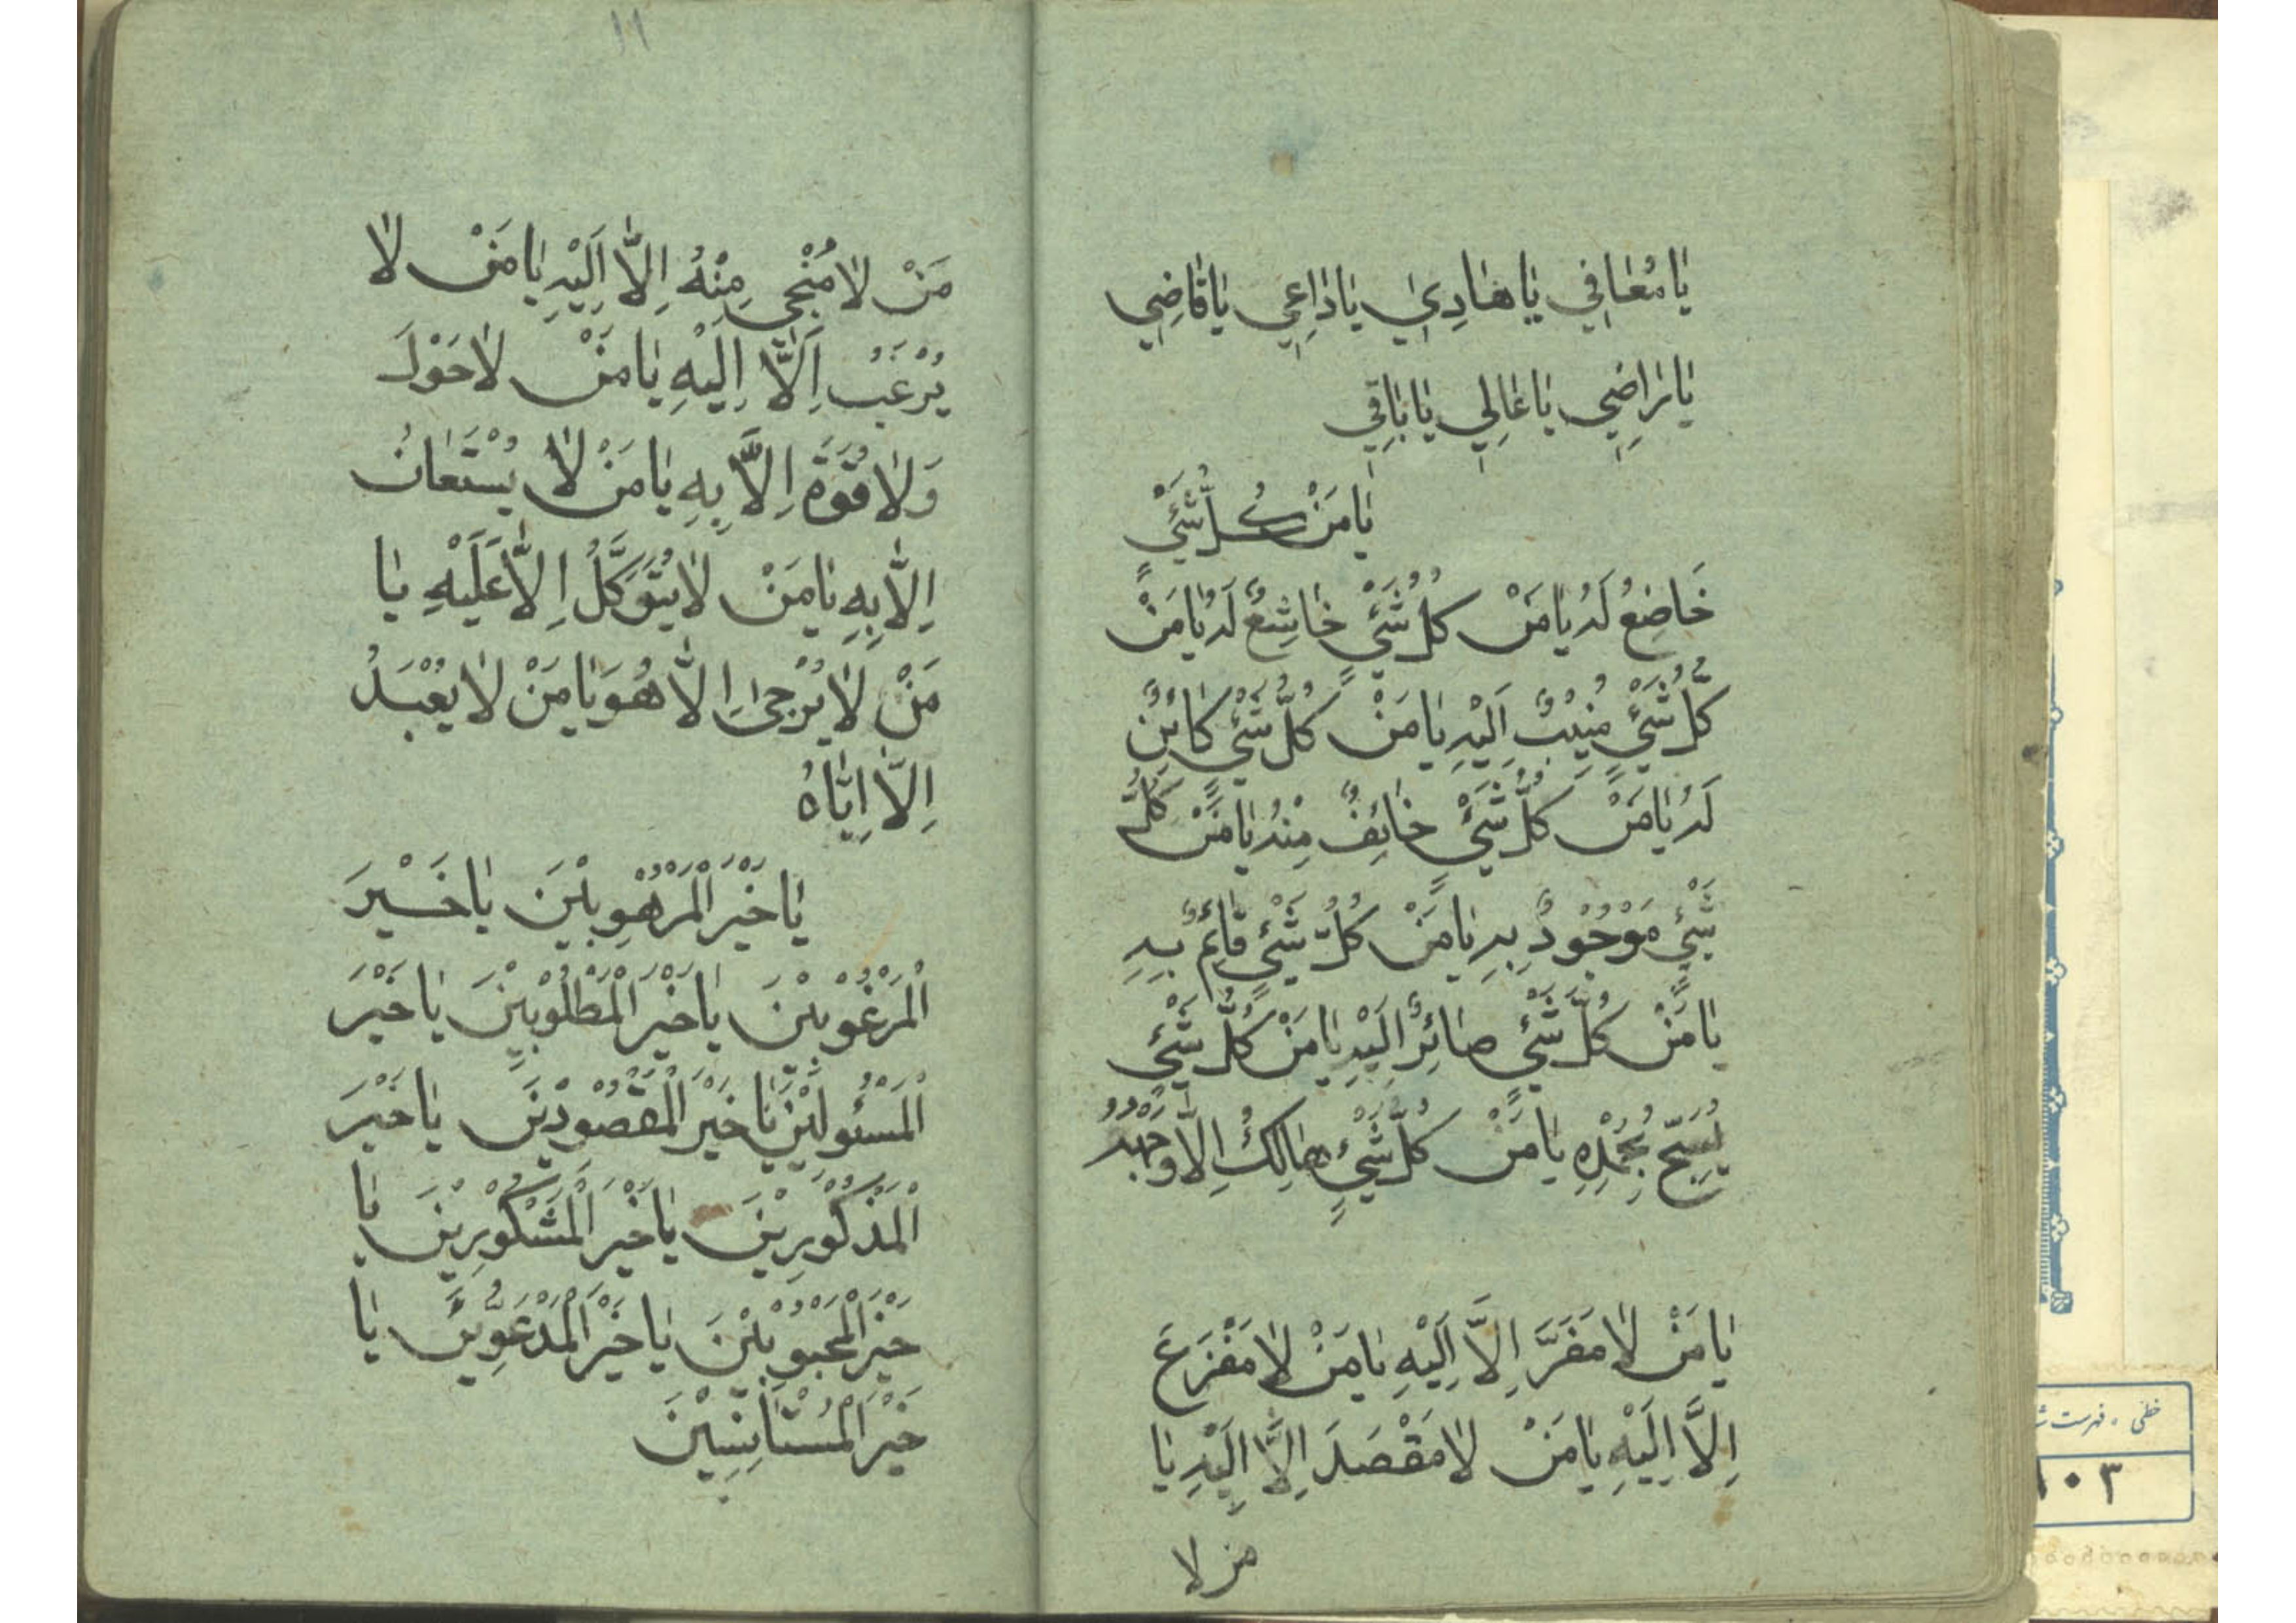 يَا مُعَافِي يَا هَادِي يَا دَاعِي يَا قَاضِي
يَا رَاضِي يَا عَالِي يَا بَاقِي
يَا مَنْ كُلُّ شَيْءٍ
خَاضِعٌ لَهُ يَا مَنْ كُلُّ شَيْءٍ خَاشِعٌ لَهُ يَا مَنْ
كُلُّ شَيْءٍ مُنِيبٌ اِلَيْهِ يَا مَنْ كُلُّ شَيْءٍ كَائِنٌ
لَهُ يَا مَنْ كُلُّ شَيْءٍ خَائِفٌ مِنْهُ يَا مَنْ كُلُّ
شَيْءٍ مَوْجُودٌ بِهِ يَا مَنْ كُلُّ شَيْءٍ قَائِمٌ بِهِ
يَا مَنْ كُلُّ شَيْءٍ صَائِرٌ اِلَيْهِ يَا مَنْ كُلُّ شَيْءٍ
يُسَبِّحُ بِحَمْدِهِ يَا مَنْ كُلُّ شَيْءٍ هَالِكٌ اِلَّا وَجْهَهُ
يَا مَنْ لَا مَفَرَّ اِلَّا اِلَيْهِ يَا مَنْ لَا مَفْزَعَ
اِلَّا اِلَيْهِ يَا مَنْ لَا مَقْصَدَ اِلَّا اِلَيْهِ يَا
من لا
١١
مَنْ لَا مُنْجِي مِنْهُ اِلَّا اِلَيْهِ يَا مَنْ لَا
يُرْغَبُ اِلَّا اِلَيْهِ يَا مَنْ لَا حَوْلَ
وَلَا قُوَّةَ اِلَّا بِهِ يَا مَنْ لَا يُسْتَعَانُ
اِلَّا بِهِ يَا مَنْ لَا يُتَوَكَّلُ اِلَّا عَلَيْهِ يَا
مَنْ لَا يُرْجَىٰ اِلَّا هُوَ يَا مَنْ لَا يُعْبَدُ
اِلَّا اِيَّاهُ
يَا خَيْرَ الْمَرْهُوبِينَ يَا خَيْرَ
الْمَرْغُوبِينَ يَا خَيْرَ الْمَطْلُوبِينَ يَا خَيْرَ
الْمَسْئُولِينَ يَا خَيْرَ الْمَقْصُودِينَ يَا خَيْرَ
الْمَذْكُورِينَ يَا خَيْرَ الْمَشْكُورِينَ يَا
خَيْرَ الْمَحْبُوبِينَ يَا خَيْرَ الْمَدْعُوِّينَ يَا
خَيْرَ الْمُسْتَأْنِسِينَ
خطی ، فهرست
١٠٣